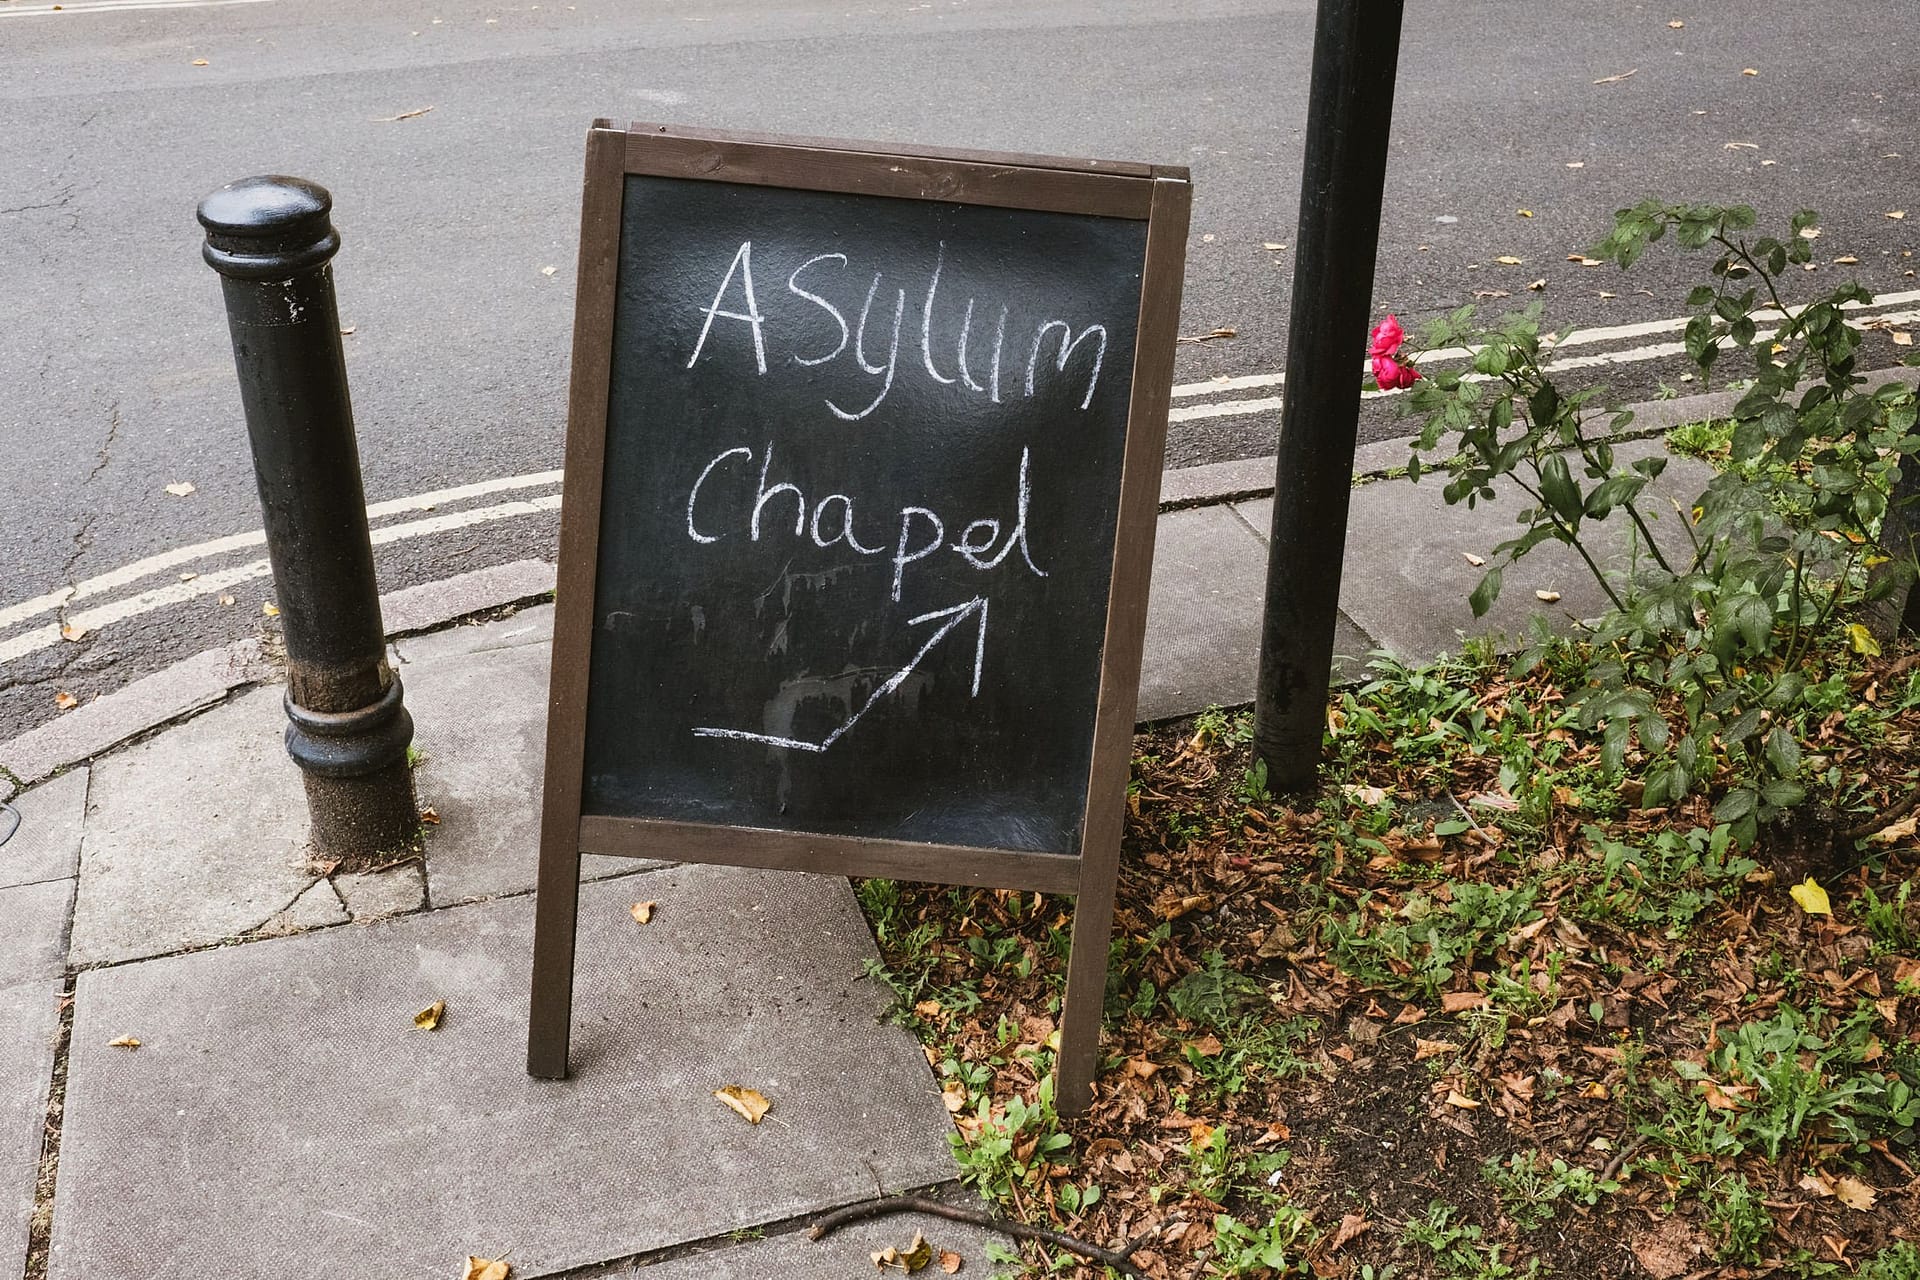 Asylum
Chapel